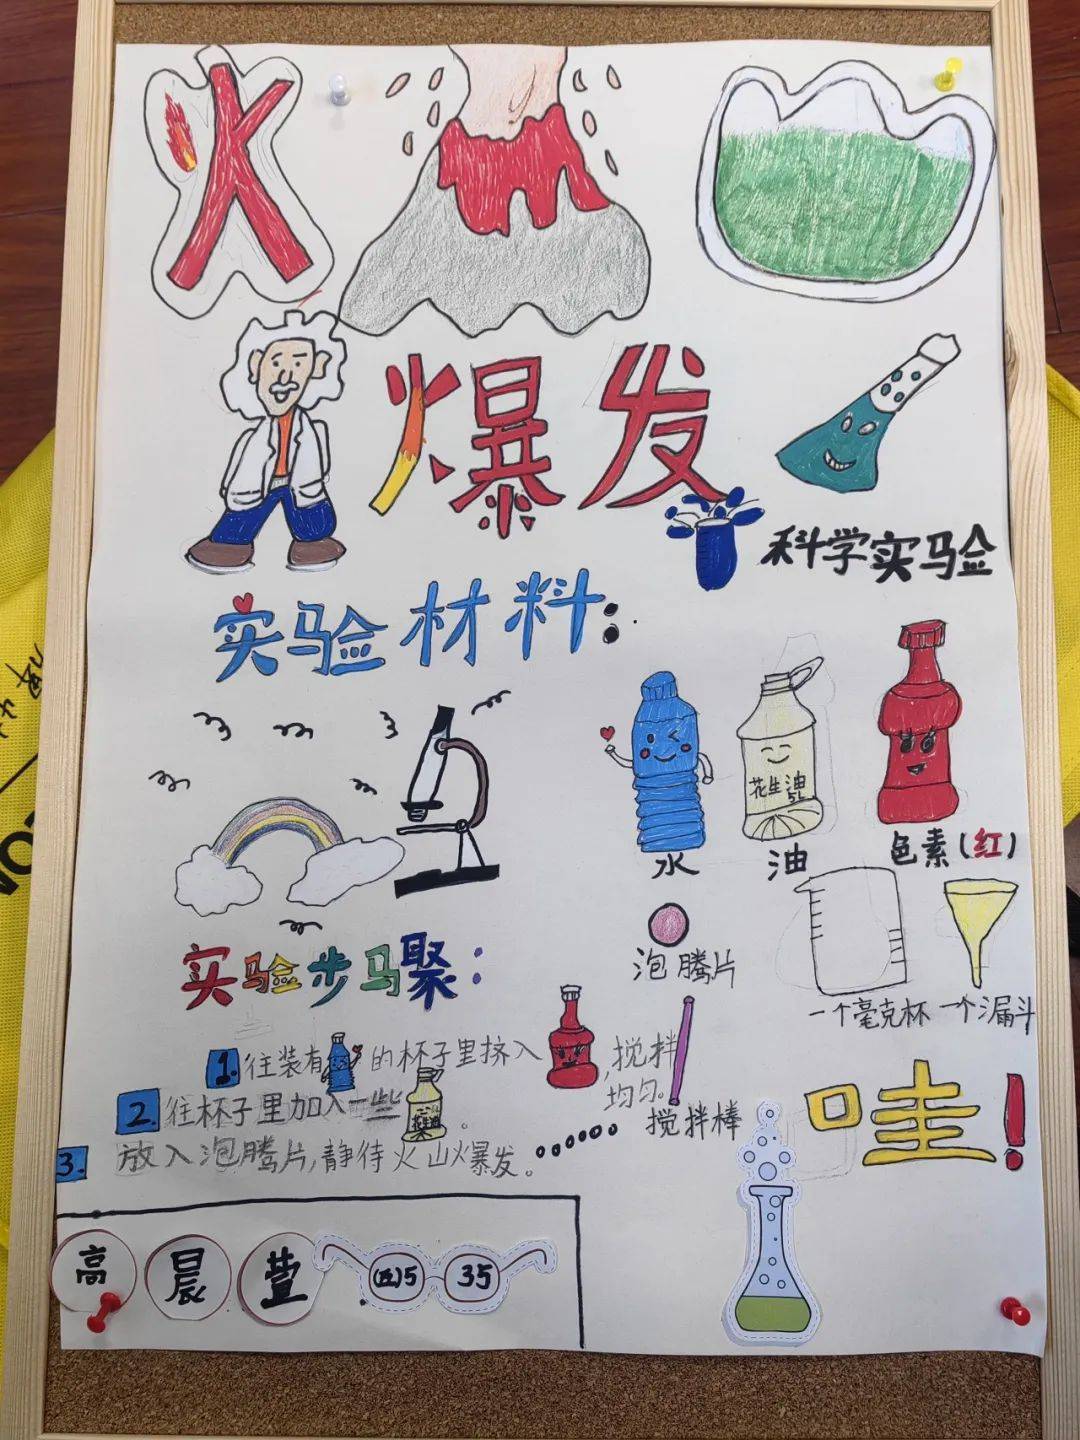 火
爆发
科学实验
实验材料:
花生油
5L
水
油
色素(红)
泡腾片
一个毫克杯
一个漏斗
实验步马聚:
1. 往装有的杯子里挤入,搅拌均匀。
搅拌棒
2. 往杯子里加入一些。
3. 放入泡腾片,静待火山爆发。......
哇!
高晨萱
(五)5
35